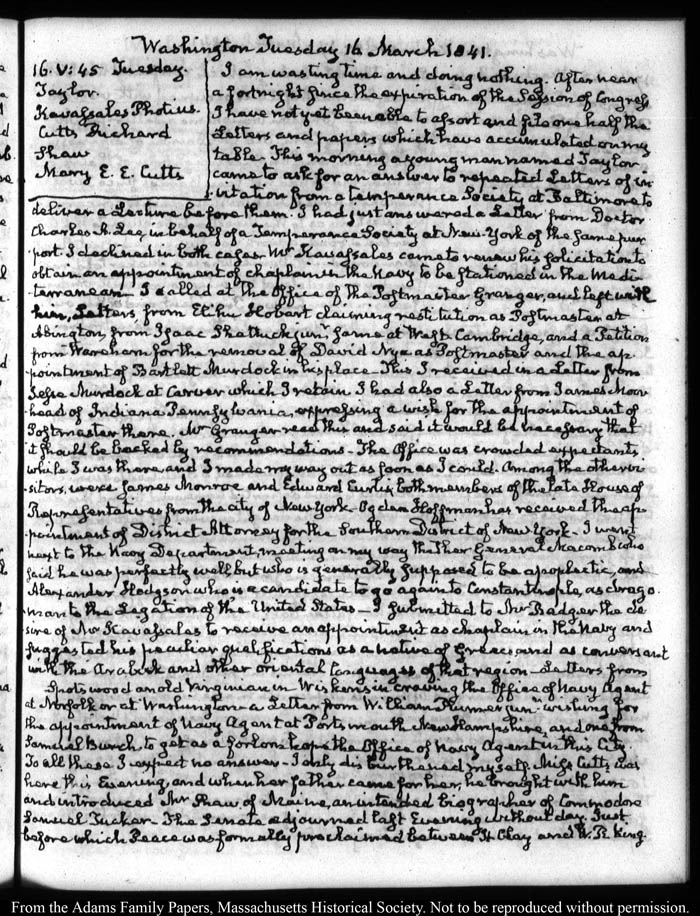 Washington Tuesday 16 March 1841.
16. V:45 Tuesday.
Taylor.
Kavasales Photius.
Cutts Richard
Shaw
Mary E. E. Cutts
I am wasting time and doing nothing. After near
a fortnight since the expiration of the Session of Congress
I have not yet been able to assort and file one half the
Letters and papers which have accumulated on my
table. This morning a young man named Taylor
came to ask for an answer to repeated Letters of in-
-vitation from a temperance Society at Baltimore to
deliver a Lecture before them. I had just answered a Letter from Doctor
Charles A. Lee, in behalf of a Temperance Society at New-York of the same pur-
port. I declined in both cases. Mr Kavasales came to renew his solicitation to
obtain an appointment of chaplain in the Navy to be stationed in the Medi-
terranean. I called at the Office of the Postmaster Granger, and left with
him, Letters, from Elihu Hobart claiming restitution as Postmaster at
Abington, from Isaac Shattuck junr. same at West Cambridge, and a Petition
from Wareham for the removal of David Nye as Postmaster and the ap-
pointment of Bartlett Murdock in his place. This I received in a Letter from
Jesse Murdock at Carver which I retain. I had also a Letter from James Moor-
head of Indiana Pennsylvania, expressing a wish for the appointment of
Postmaster there. Mr Granger read this and said it would be necessary that
it should be backed by recommendations. The Office was crowded expectants
while I was there, and I made my way out as soon as I could. Among the other vi-
-sitors, were James Monroe and Edward Curtis both members of the late House of
Representatives from the city of New York. Ogden Hoffman has received the ap-
-pointment of District Attorney for the Southern District of New York. I went
next to the Navy Department, meeting on my way thither General Macomb who
said he was perfectly well but who is generally supposed to be apoplectic, and
Alexander Hodgson who is a candidate to go again to Constantinople, as drago-
man to the Legation of the United States. I submitted to Mr Badger the de-
sire of Mr Kavasales to receive an appointment as chaplain in the Navy and
suggested his peculiar qualifications as a native of Greece and as conversant
with the Arabick and other oriental languages of that region. Letters from
Spotswood an old Virginian in Wiskensin craving the Office of Navy Agent
at Norfolk or at Washington—a Letter from William Plumer junr. wishing for
the appointment of Navy Agent at Portsmouth New Hampshire, and one from
Samuel Burch to get as a forlorn hope the Office of Navy Agent in this City.
To all these I expect no answer. I only disburthened myself. Miss Cutts was
here this Evening, and when her father came for her, he brought with him
and introduced Mr Shaw of Maine, an intended biographer of Commodore
Samuel Tucker. The Senate adjourned last Evening without day. Just
before which Peace was formally proclaimed between H. Clay and W. R. King.
From the Adams Family Papers, Massachusetts Historical Society. Not to be reproduced without permission.